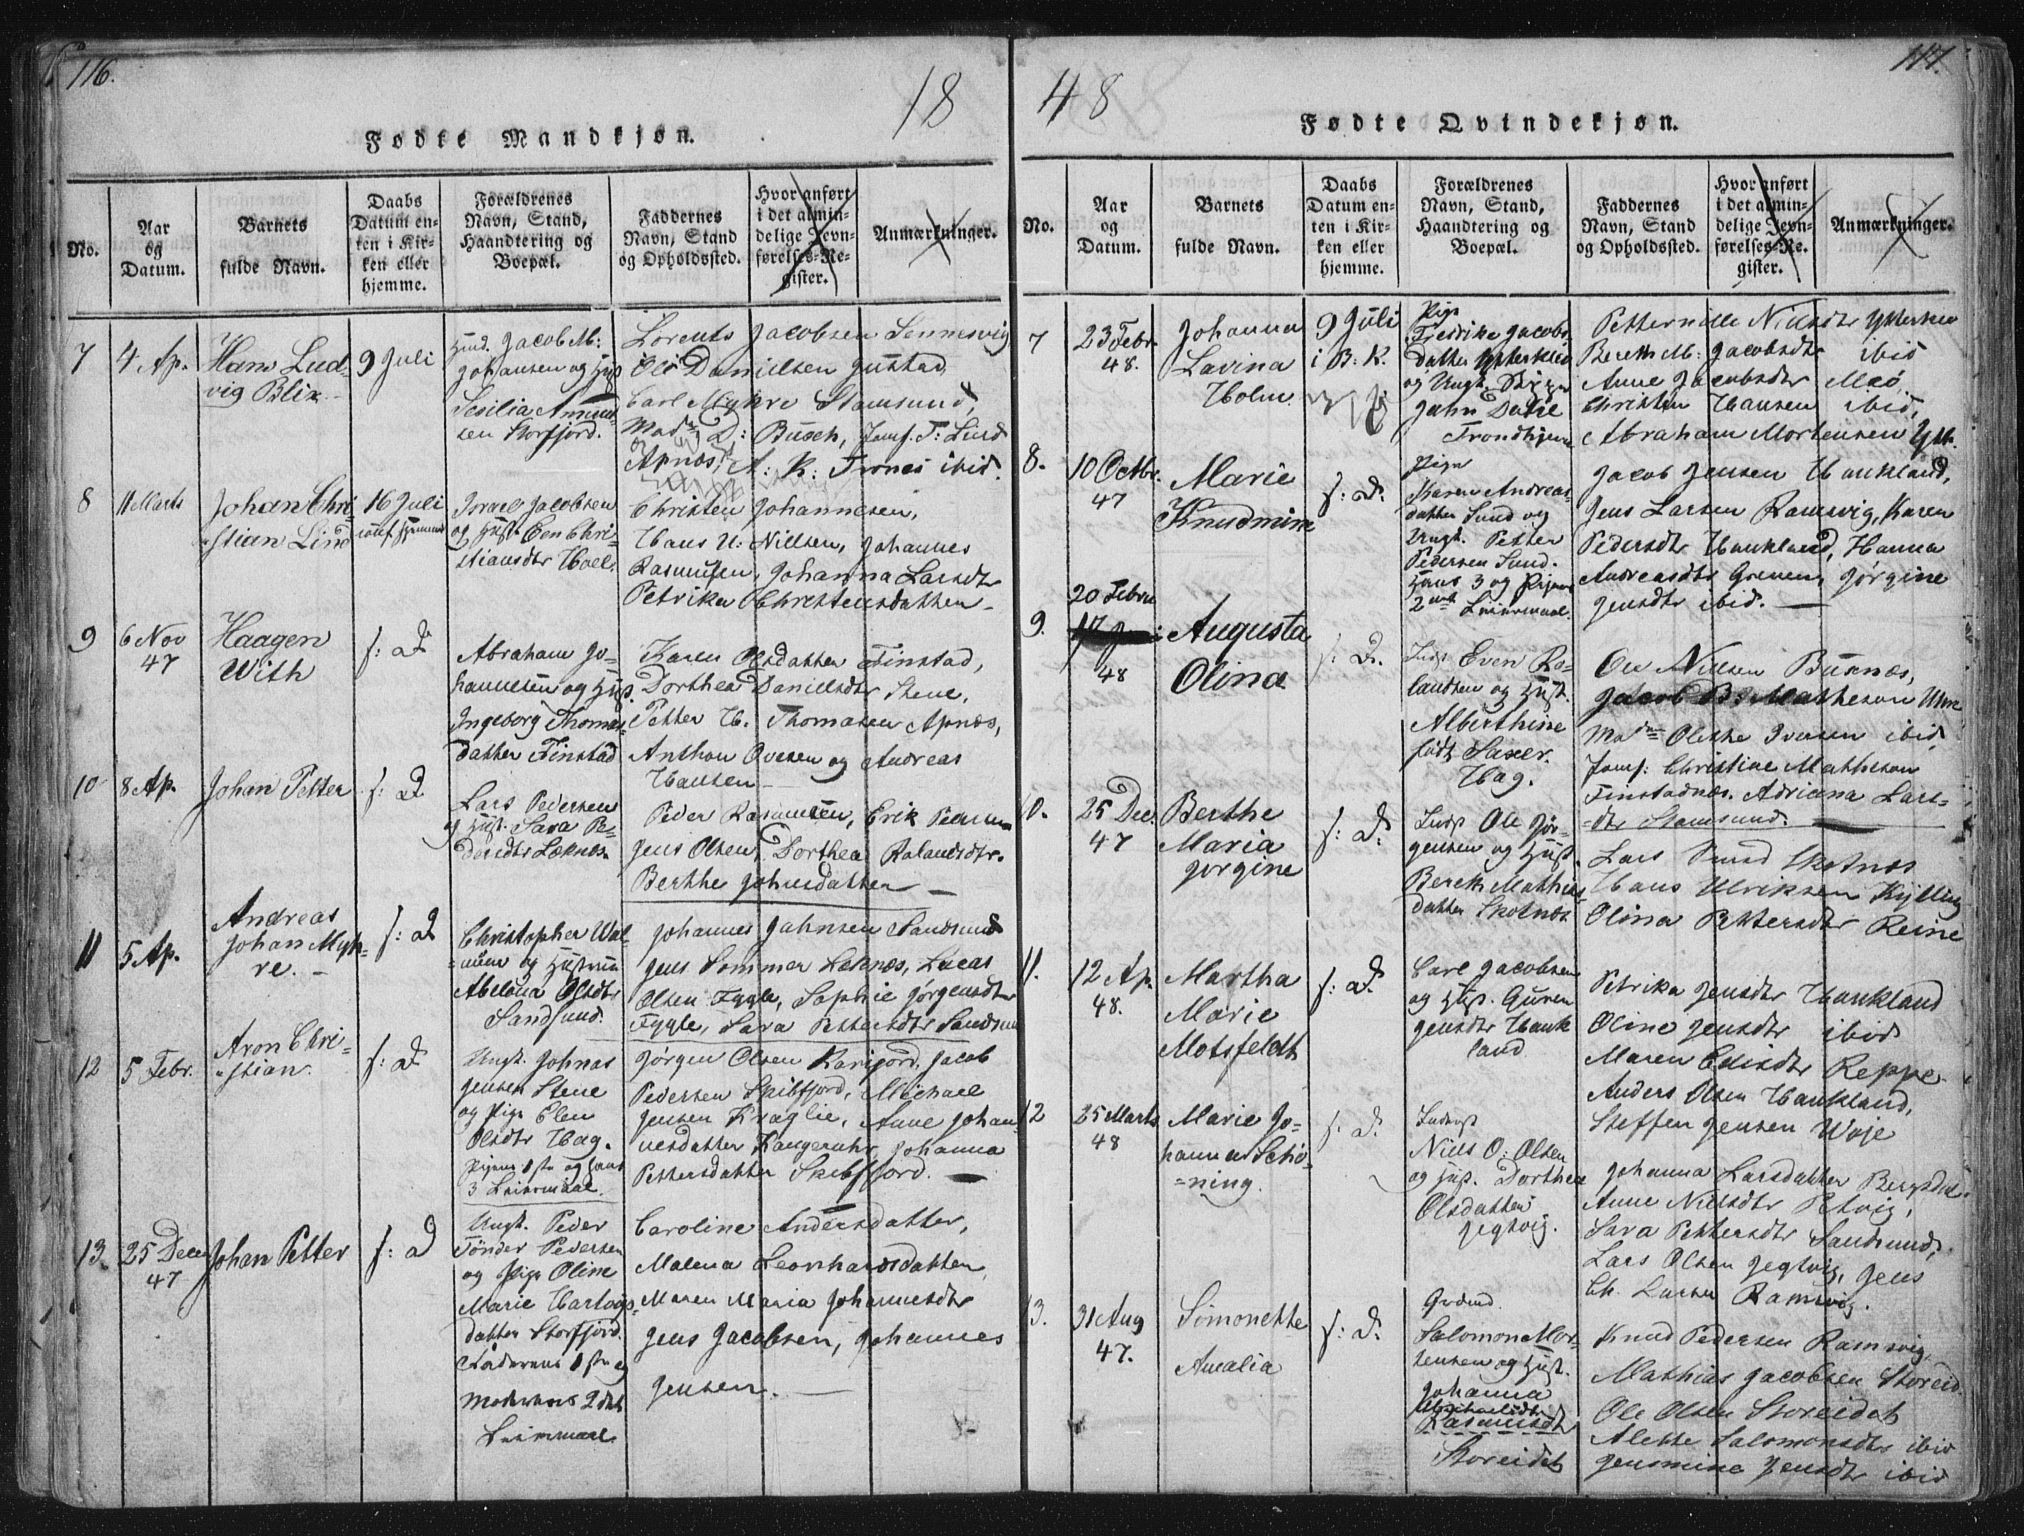 116.
18
Fødte Mandkjøn.
No.
Aar
og
Datum.
Barnets
fulde Navn.
Daabs
Datum en-
ten i Kir-
ken eller
hjemme.
Forældrenes
Navn, Stand,
Haandtering og
Boepæl.
Faddernes
Navn, Stand
og Opholdssted.
Hvor anført
i det almin-
delige Jevn-
førelses-Re-
gister.
Anmærkninger.
7
4 Ap.
Hans Lud-
vig Blix
9 Juli
Jacob M:
Johansen og
Sesilia
sen Storfjord.
Lorents Jacobsen Sennesvig
Ole Danielsen Gustad,
Carl Myhre Stamsund,
D: Busch, Jomf. T: Lund
Apnæs, A. K: Trones ibid.
8
11 Marts
Johan Chri-
stian Lind
16 Juli
Israel Jacobsen
og Hust. Chri-
stiansdtr Hoel.
Christen Johannesen,
Hans N: Nielsen, Johannes
Rasmussen, Johanna Larsdtr
Petrika Christensdatter
9
6 Nov
47
Haagen
With
f: D
Abraham Jo-
hannesen og Hust.
Ingeborg Thomas-
datter Finstad
Karen Olsdatter Finstad,
Dorthea Danielsdtr Stene,
Petter H. Thomasen Apnæs,
Anthon Ovesen og Andreas
Hansen
10
8 Ap.
Johan Petter
f: D
Lars Pedersen
og Hust. Sara Pe-
dersdtr Leknes.
Peder Rasmussen, Erik Pedersen
Jens Olsen, Dorthea Rolandsdtr.
Berthe Johnsdatter
11
5 Ap.
Andreas
Johan Myh-
re.
f: D
Christopher Wal-
og Hustrue
Abelona Olsdtr
Sandsund.
Johannes Jahnsen Sandsund
Jens Sommer Leknæs, Lucas
Olsen Fygle, Sophie Jørgensdtr
Fygle, Sara Pettersdtr Sandsund
12
5 Febr.
Aron Chri-
stian.
f: D
Ungk. Johnas
Jensen Stene
og Pige Elen
Olsdtr Hag.
Pigens 1ste og Hans
3 Leiermaal.
Jørgen Olsen Ramfjord, Jacob
Pedersen Skibfjord, Michael
Jensen Kraglie, Anne Johan-
nesdatter Kangerur, Johanna
Pettersdatter Skibfjord.
13.
25 Decem
47
Johan Petter
f: D
Ungk. Peder
Tønder Pedersen
og Pige Oline
Marie Hartvigs-
datter Storfjord.
Faderens 1ste og
Moderens 2det
Leiermaal.
Caroline Andersdatter,
Malena Leonhardsdatter,
Maren Maria Johannesdtr
Jens Jacobsen, Johannes
Jensen.
117.
48
Fødte Qvindekjøn.
No.
Aar
og
Datum.
Barnets
fulde Navn.
Daabs
Datum en-
ten i Kir-
ken eller
hjemme.
Forældrenes
Navn, Stand,
Haandtering og
Boepæl.
Faddernes
Navn, Stand
og Opholdssted.
Hvor anført
i det almin-
delige Jevn-
førelses-Re-
gister.
Anmærkninger.
7
23 Febr.
48.
Johanna
Lavina
Holm
9 Juli
i B: K.
Pige
Fredrike Jacobs-
datter
og Ungk.
Jahn
Trondhjem
Petternelle Nielsdtr
Bereth M: Jacobsdtr ibid
Anne Jacobsdtr
Christen Hansen ibid,
Abraham Mortensen
8.
10 Octbr.
47
Marie
Knudmine
f: D.
Pige
Karen Andreas-
datter Sund og
Ungk. Petter
Pedersen Sund.
Hans 3 og Pigens
2det Leiermaal.
Jacob Jensen Haukland,
Jens Larsen Ramsvig, Karen
Pedersdtr Haukland, Hanna
Andreasdtr Greven, Jørgine
Jensdtr ibid.
9.
20 Febru
48
Augusta
Olina
f: D.
Inds Even Ro-
landsen og Hust.
Alberthine
født
Hag.
Ole Nielsen Buksnæs,
Jacob B: Mathesen Ure
Madme Olethe Iversen ibid,
Jomf: Christine Mathesen
Finstadnæs. Adriana Lars-
dtr Stamsund.
10.
25 Dec.
47
Berthe
Maria
Jørgine
f: D.
Inds Ole Jør-
gensen og Hust.
Bereth Mathias
datter Skotnæs
Lars Skotnæs
Hans Ulriksen Kylling
Olina Pettersdtr Reine
11.
12 Ap.
48.
Martha
Marie
Motsfeldt
f: D.
Carl Jacobsen
og Hust. Guren
Jensdtr Hauk
land
Petrika Jensdtr Haukland
Oline Jensdtr ibid
Maren Edisdtr Reppe
Anders Olsen Haukland,
Steffen Jensen Woje
12
25 Marts
48
Marie Jo-
hanna Schø-
ning.
f: D.
Niels O: Olsen
og Hust. Dorthea
Olsdatter
Jegtvig.
Johanna Larsdatter Bergsdal.
Anne Nielsdtr Petvig,
Sara Pettersdtr Sandsund,
Lars Olsen Jegtvig, Jens
Ch. Larsen Ramsvig.
13.
31 Aug
47.
Simonette
Amalia
f: D.
Salomon Mor-
tensen og Hust.
Johanna
Rasmusdtr
Storeidet
Knud Pedersen Ramsvig,
Mathias Jacobsen Storeid.
Ole Olsen Storeidet
Alette Salomonsdtr ibid
Jensmine Jensdtr ibid